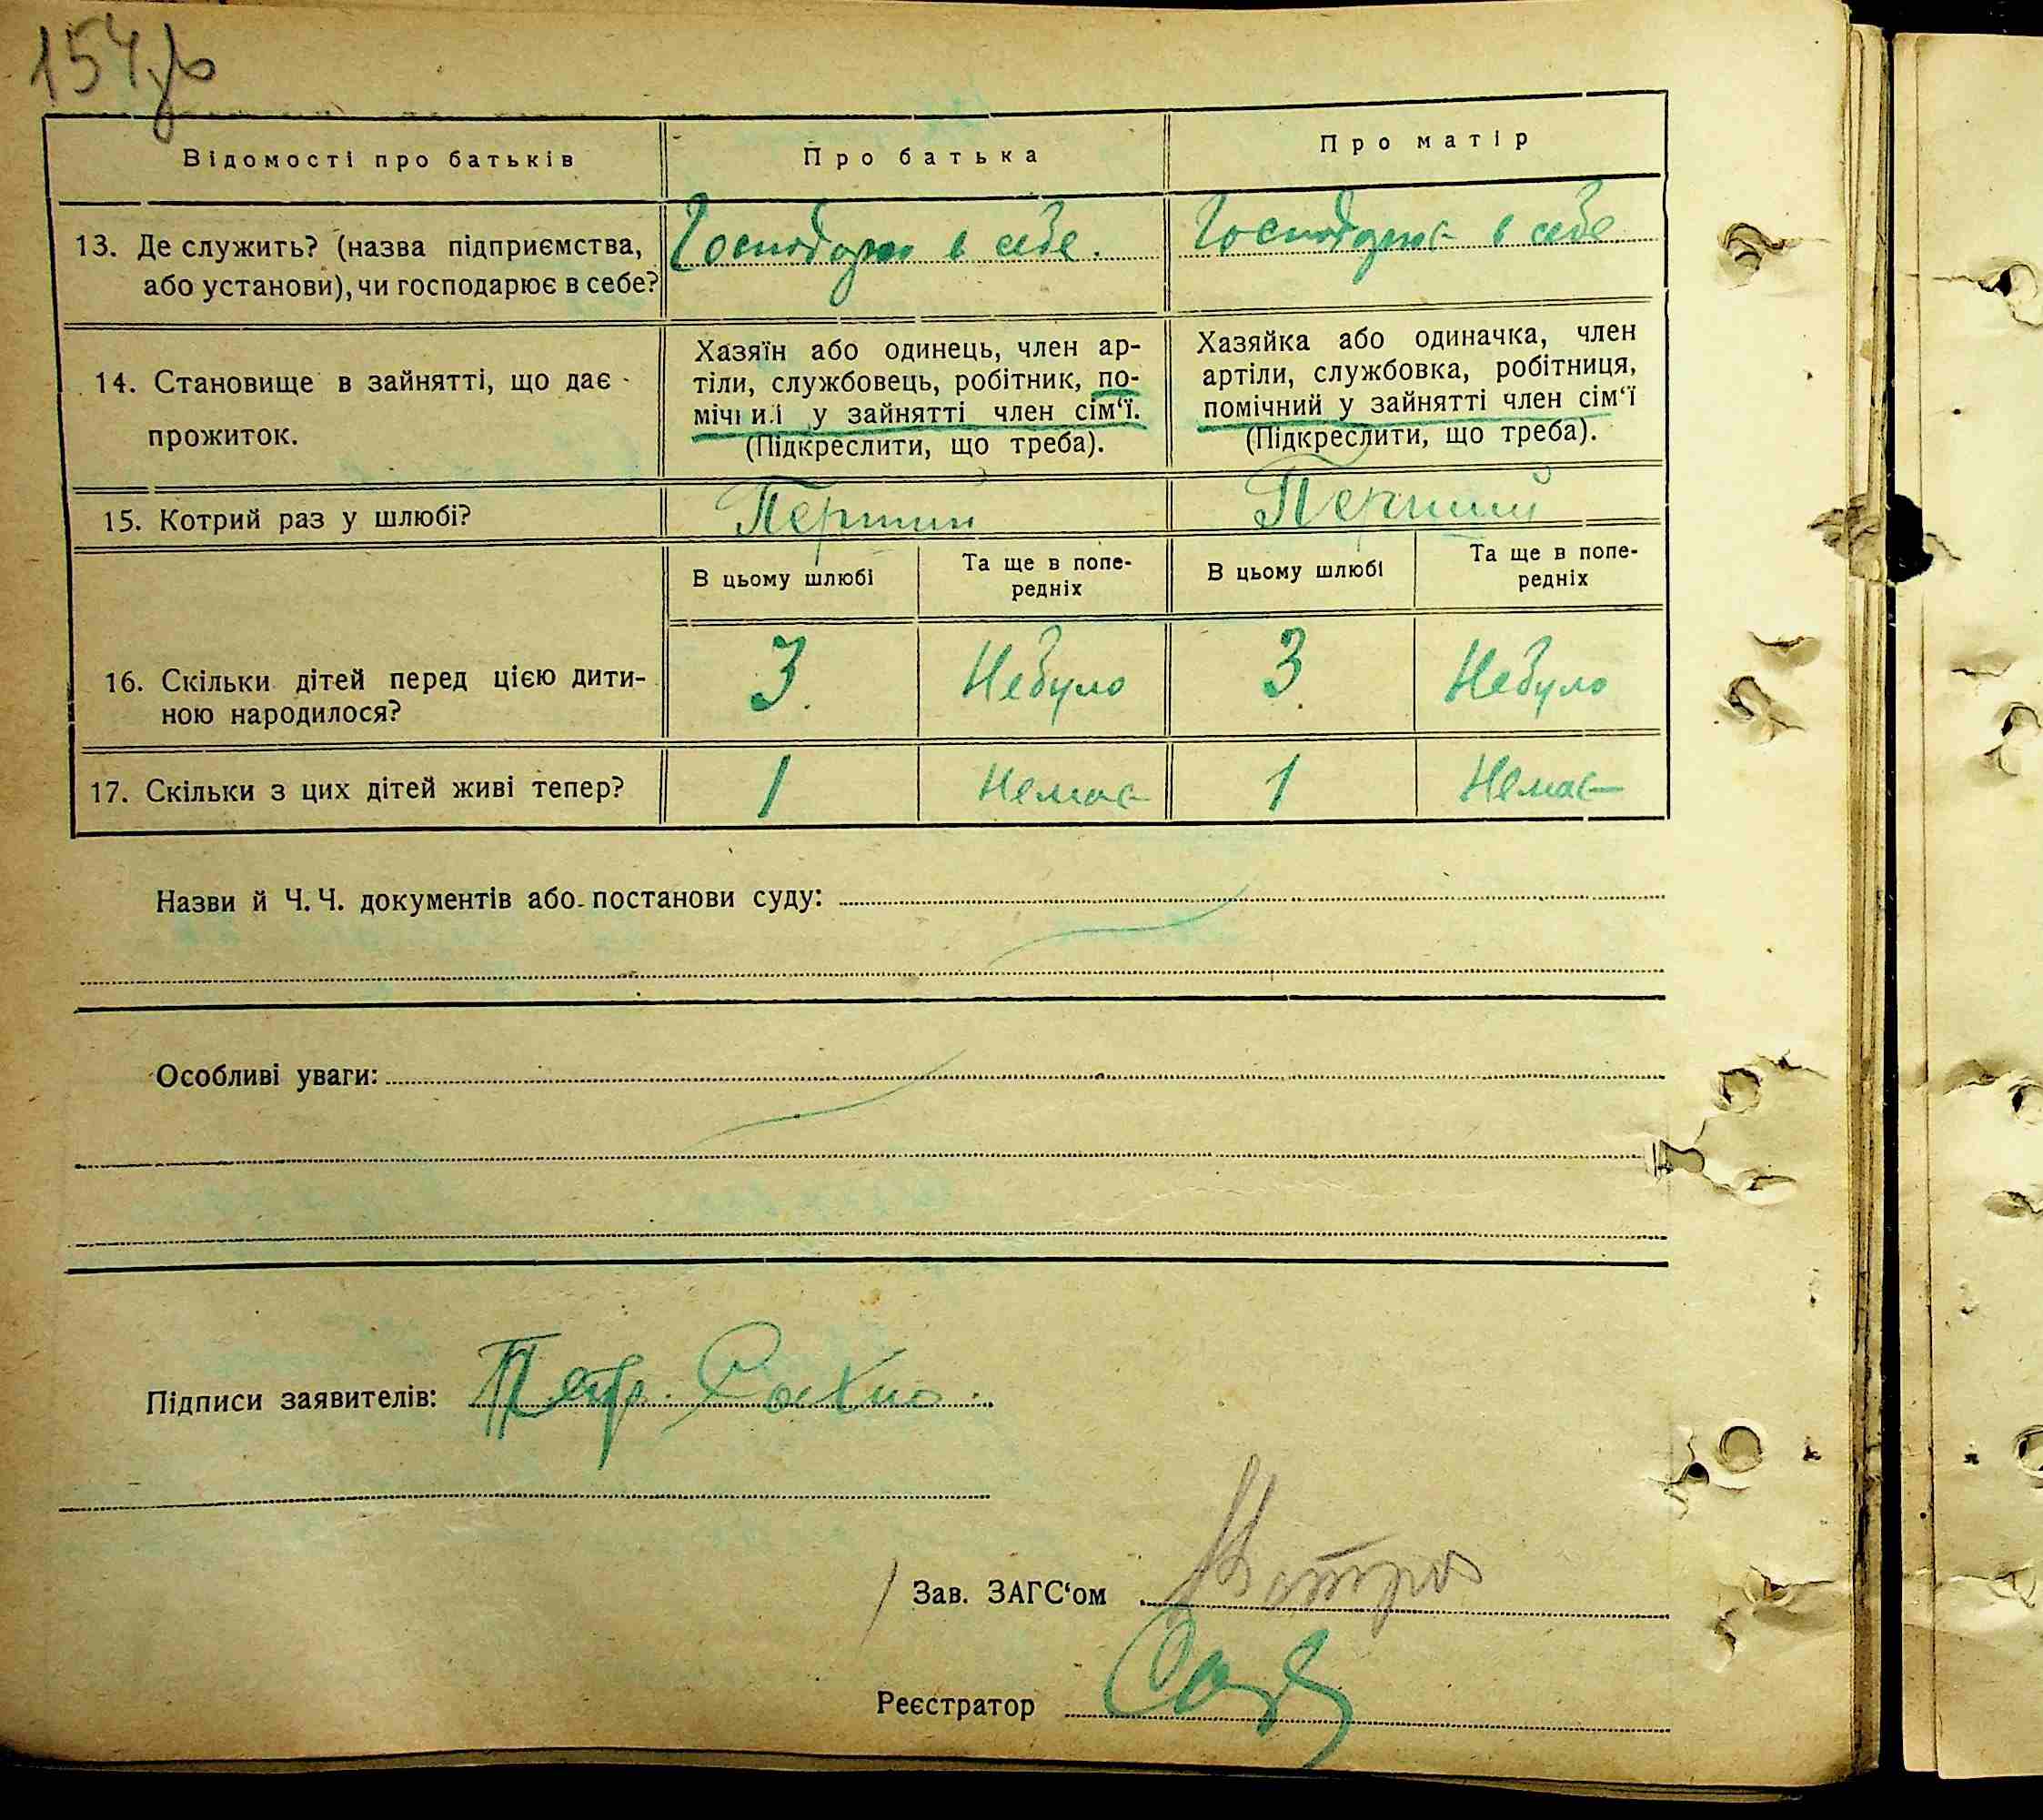 154
Відомості про батьків
Про батька
Про матір
13. Де служить? (назва підприємства,
або установи), чи господарює в себе?
Господарює в себе.
Господарює в себе
14. Становище в зайнятті, що дає
прожиток.
Хазяїн або одинець, член ар-
тіли, службовець, робітник, по-
мічний у зайнятті член сім‘ї.
(Підкреслити, що треба).
Хазяйка або одиначка, член
артіли, службовка, робітниця,
помічний у зайнятті член сім‘ї
(Підкреслити, що треба).
15. Котрий раз у шлюбі?
Перший
Перший
В цьому шлюбі
Та ще в попе-
редніх
В цьому шлюбі
Та ще в попе-
редніх
16. Скільки дітей перед цією дити-
ною народилося?
3
Небуло
3
Небуло
17. Скільки з цих дітей живі тепер?
1
Немає
1
Немає
Назви й Ч. Ч. документів або постанови суду:
Особливі уваги:
Підписи заявителів: Петр
Зав. ЗАГС‘ом
Реєстратор